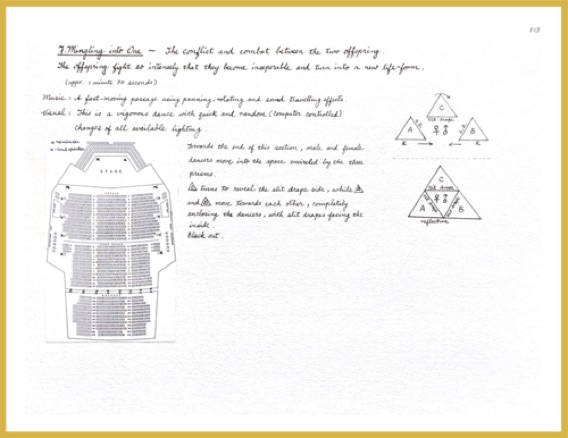 7. Mingling into One — The conflict and combat between the two offspring.
The offspring fight so intensely that they become inseparable and turn into a new life-form.
(appr. 1 minute 30 seconds)
Music : A fast-moving passage using panning, rotating and sound travelling effects.
Visual : This is a vigorous dance with quick and random (computer controlled)
changes of all available lighting.
STAGE
Towards the end of this section, male and female
dancers move into the space encircled by the three
prisms.
turns to reveal the slit drape side, while
and move towards each other, completely
enclosing the dancers, with slit drapes facing the
inside.
Black out.
C
slit drape
A
B
R
R
C
slit drape
A
B
reflections